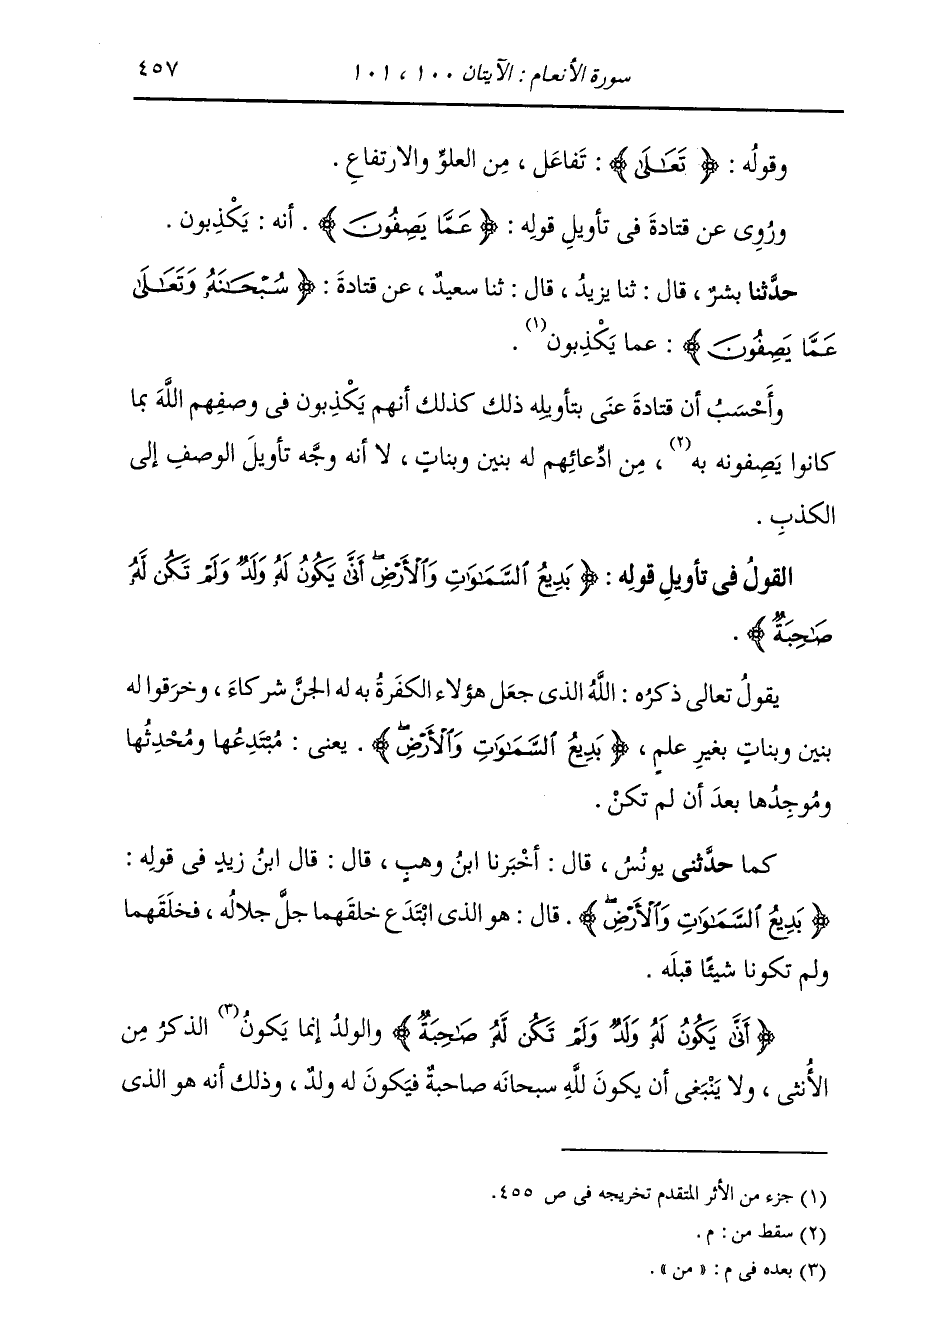 سورة الأنعام : الآيتان ١٠٠ ، ١٠١ ٤٥٧
وقولُه : ﴿ تَعَـٰلَىٰ ﴾ : تَفاعَل ، مِن العلوِّ والارتفاعِ .
ورُوِى عن قتادةَ فى تأويلِ قولِه : ﴿ عَمَّا يَصِفُونَ ﴾ . أنه : يَكْذِبون .
حدَّثنا بشرٌ ، قال : ثنا يزيدُ ، قال : ثنا سعيدٌ ، عن قتادةَ : ﴿ سُبْحَـٰنَهُۥ وَتَعَـٰلَىٰ
عَمَّا يَصِفُونَ ﴾ : عما يَكْذِبون(١) .
وأَحْسَبُ أن قتادةَ عنَى بتأويلِه ذلك كذلك أنهم يَكْذِبون فى وصفِهم اللَّهَ بما
كانوا يَصِفونه به(٢) ، مِن ادِّعائِهم له بنين وبناتٍ ، لا أنه وجَّه تأويلَ الوصفِ إلى
الكذبِ .
القولُ فى تأويلِ قولِه : ﴿ بَدِيعُ ٱلسَّمَـٰوَٰتِ وَٱلْأَرْضِۖ أَنَّىٰ يَكُونُ لَهُۥ وَلَدٌ وَلَمْ تَكُن لَّهُۥ
صَـٰحِبَةٌۖ ﴾ .
يقولُ تعالى ذكرُه : اللَّهُ الذى جعَل هؤلاء الكفَرةُ به له الجنَّ شركاءَ ، وخرَقوا له
بنين وبناتٍ بغيرِ علمٍ ، ﴿ بَدِيعُ ٱلسَّمَـٰوَٰتِ وَٱلْأَرْضِۖ ﴾ . يعنى : مُبْتَدِعُها ومُحْدِثُها
ومُوجِدُها بعدَ أن لم تكنْ .
كما حدَّثنى يونُسُ ، قال : أخْبَرنا ابنُ وهبٍ ، قال : قال ابنُ زيدٍ فى قولِه :
﴿ بَدِيعُ ٱلسَّمَـٰوَٰتِ وَٱلْأَرْضِۖ ﴾ . قال : هو الذى ابْتَدَع خلقَهما جلَّ جلالُه ، فخلَقَهما
ولم تكونا شيئًا قبلَه .
﴿ أَنَّىٰ يَكُونُ لَهُۥ وَلَدٌ وَلَمْ تَكُن لَّهُۥ صَـٰحِبَةٌۖ ﴾ والولدُ إنما يَكونُ(٣) الذكرُ مِن
الأُنثى ، ولا يَنْبَغى أن يكونَ للَّهِ سبحانَه صاحبةٌ فيَكونَ له ولدٌ ، وذلك أنه هو الذى
(١) جزء من الأثر المتقدم تخريجه فى ص ٤٥٥.
(٢) سقط من : م .
(٣) بعده فى م : « من » .